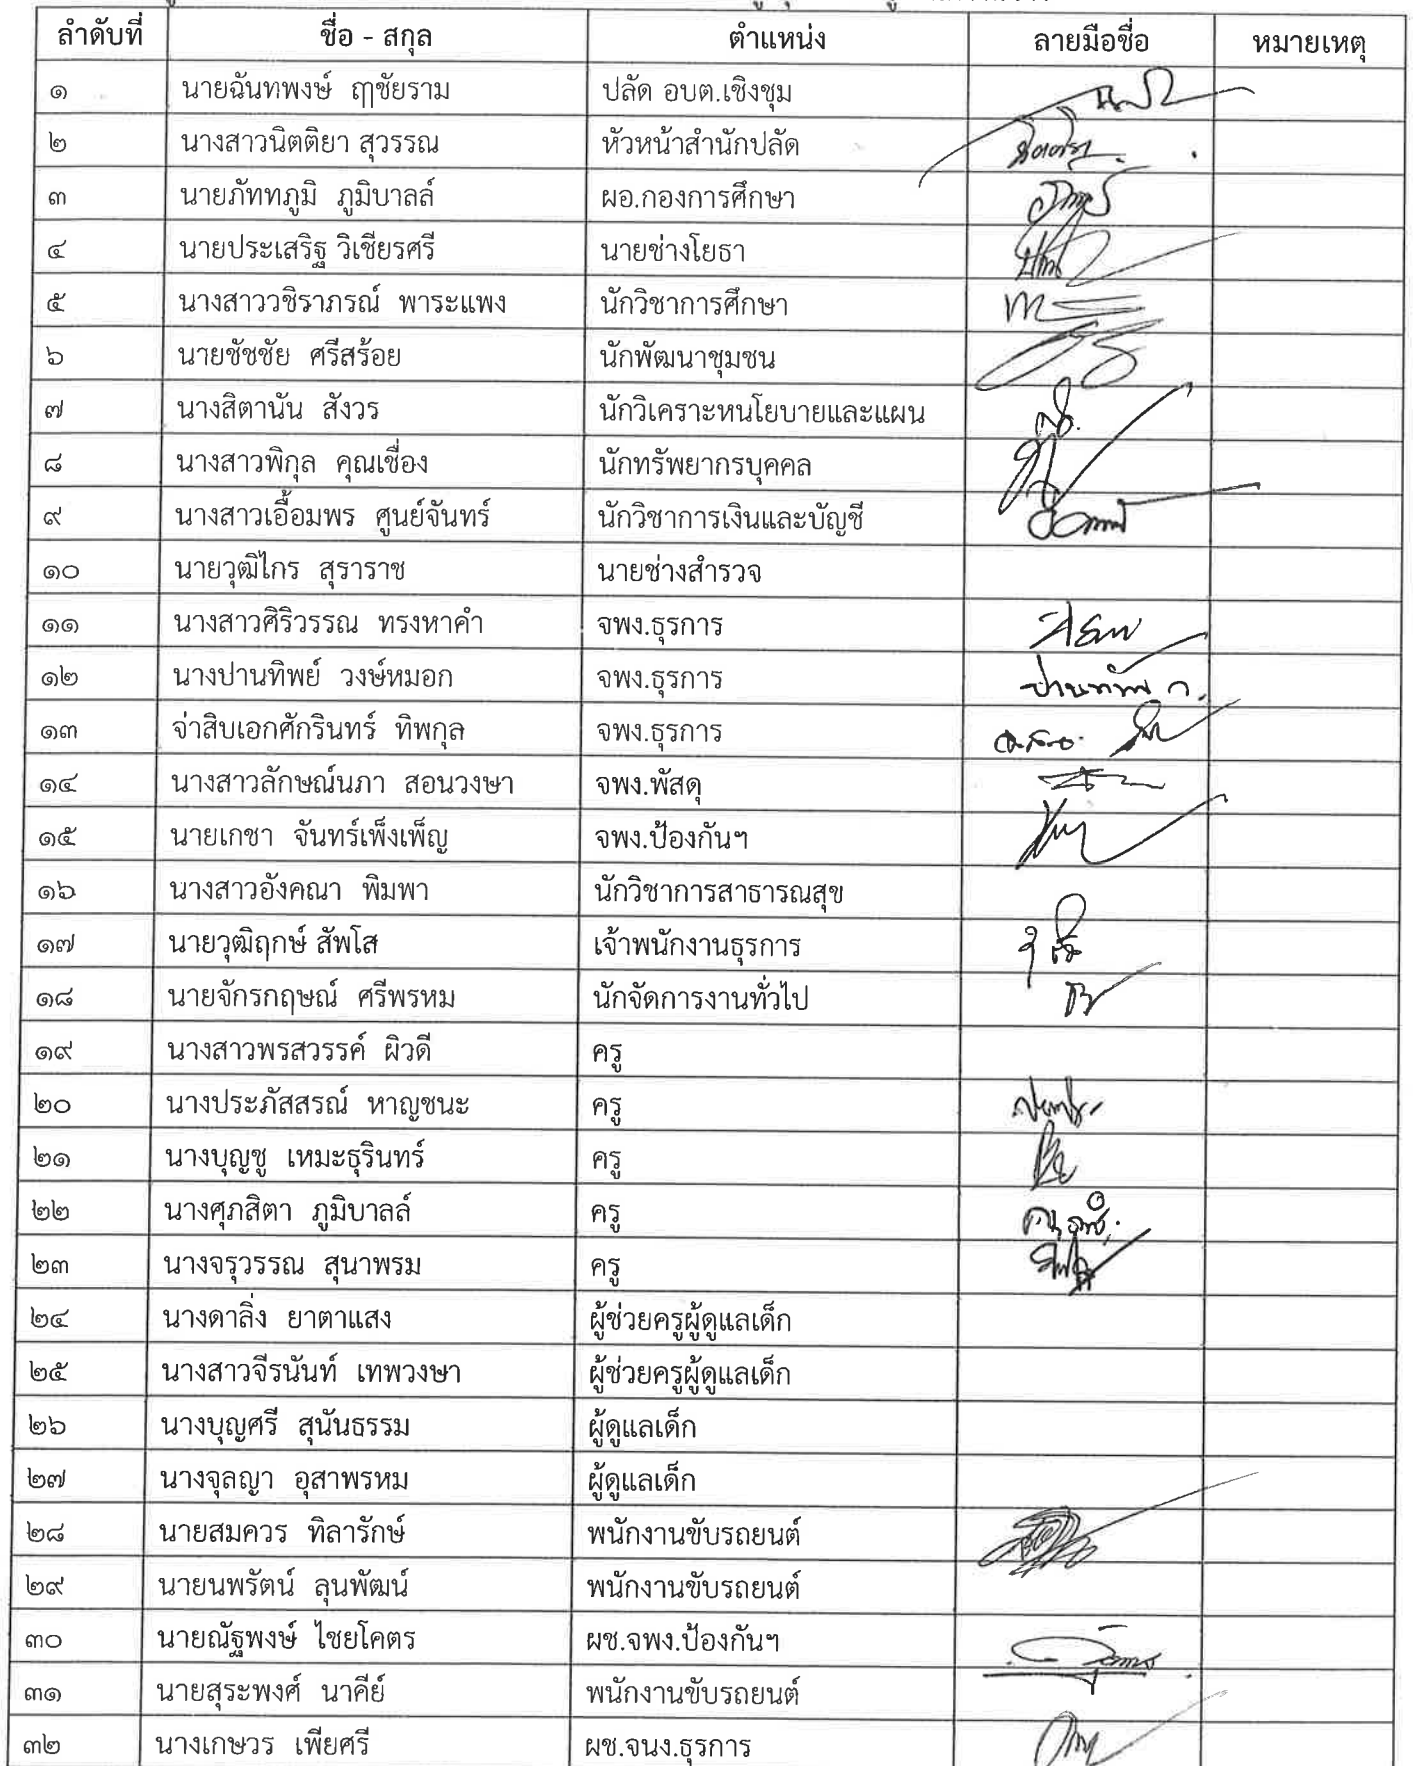 ลำดับที่ ชื่อ - สกุล ตำแหน่ง ลายมือชื่อ หมายเหตุ
๑ นายฉันทพงษ์ ฤาชัยราม ปลัด อบต.เชิงชุม
๒ นางสาวนิตติยา สุวรรณ หัวหน้าสำนักปลัด
๓ นายภัททภูมิ ภูมิบาลล์ ผอ.กองการศึกษา
๔ นายประเสริฐ วิเชียรศรี นายช่างโยธา
๕ นางสาววชิราภรณ์ พาระแพง นักวิชาการศึกษา
๖ นายชัชชัย ศรีสร้อย นักพัฒนาชุมชน
๗ นางสิตานัน สังวร นักวิเคราะหนโยบายและแผน
๘ นางสาวพิกุล คุณเชื่อง นักทรัพยากรบุคคล
๙ นางสาวเอื้อมพร ศูนย์จันทร์ นักวิชาการเงินและบัญชี
๑๐ นายวุฒิไกร สุราราช นายช่างสำรวจ
๑๑ นางสาวศิริวรรณ ทรงหาคำ จพง.ธุรการ
๑๒ นางปานทิพย์ วงษ์หมอก จพง.ธุรการ
๑๓ จ่าสิบเอกศักรินทร์ ทิพกุล จพง.ธุรการ
๑๔ นางสาวลักษณ์นภา สอนวงษา จพง.พัสดุ
๑๕ นายเกชา จันทร์เพ็งเพ็ญ จพง.ป้องกันฯ
๑๖ นางสาวอังคณา พิมพา นักวิชาการสาธารณสุข
๑๗ นายวุฒิฤกษ์ สัพโส เจ้าพนักงานธุรการ
๑๘ นายจักรกฤษณ์ ศรีพรหม นักจัดการงานทั่วไป
๑๙ นางสาวพรสวรรค์ ผิวดี ครู
๒๐ นางประภัสสรณ์ หาญชนะ ครู
๒๑ นางบุญชู เหมะธุรินทร์ ครู
๒๒ นางศุภสิตา ภูมิบาลล์ ครู
๒๓ นางจรุวรรณ สุนาพรม ครู
๒๔ นางดาลิ่ง ยาตาแสง ผู้ช่วยครูผู้ดูแลเด็ก
๒๕ นางสาวจีรนันท์ เทพวงษา ผู้ช่วยครูผู้ดูแลเด็ก
๒๖ นางบุญศรี สุนันธรรม ผู้ดูแลเด็ก
๒๗ นางจุลญา อุสาพรหม ผู้ดูแลเด็ก
๒๘ นายสมควร ทิลารักษ์ พนักงานขับรถยนต์
๒๙ นายนพรัตน์ ลุนพัฒน์ พนักงานขับรถยนต์
๓๐ นายณัฐพงษ์ ไชยโคตร ผช.จพง.ป้องกันฯ
๓๑ นายสุระพงศ์ นาคีย์ พนักงานขับรถยนต์
๓๒ นางเกษวร เพียศรี ผช.จนง.ธุรการ